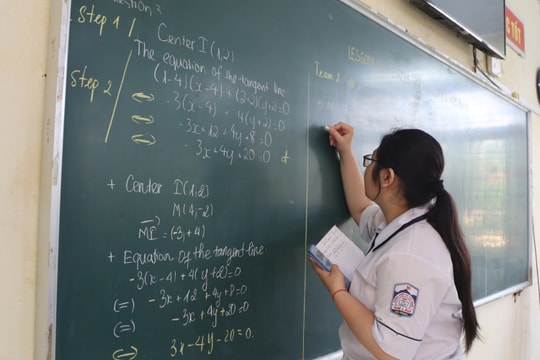 Question 3
Step 1
Center I(1,2)
The equation of the tangent line:
Step 2
(1-4)(x-4)+(2+2)(y+2)=0
⇔ -3(x-4) + 4(y+2)=0
⇔ -3x+12+4y+8=0
⇔ -3x+4y+20=0
+ Center I(1,2)
M(4,-2)
MI = (-3,4)
+ Equation of the tangent line:
-3(x-4)+4(y+2)=0
(=) -3x+12+4y+8=0
(=) -3x+4y+20=0
⇔ 3x-4y-20=0.
LESSON
Team 2
TỐT